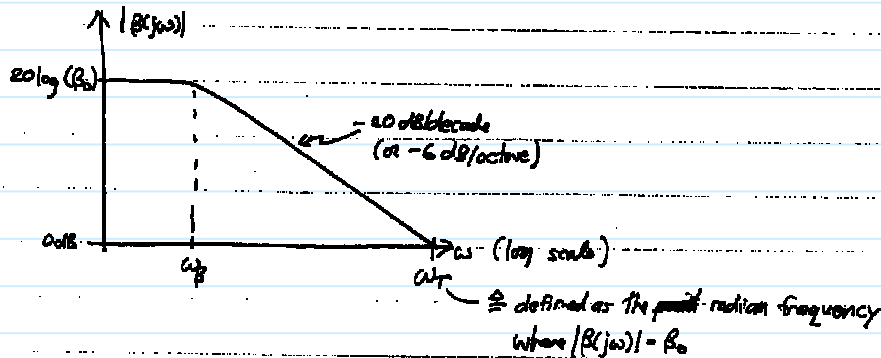 |β(jω)|
20 log (β₀)
-20 dB/decade
(or -6 dB/octave)
0 dB
ω (log scale)
ω_β
ω_T
≜ defined as the radian frequency
where |β(jω)| = β₀